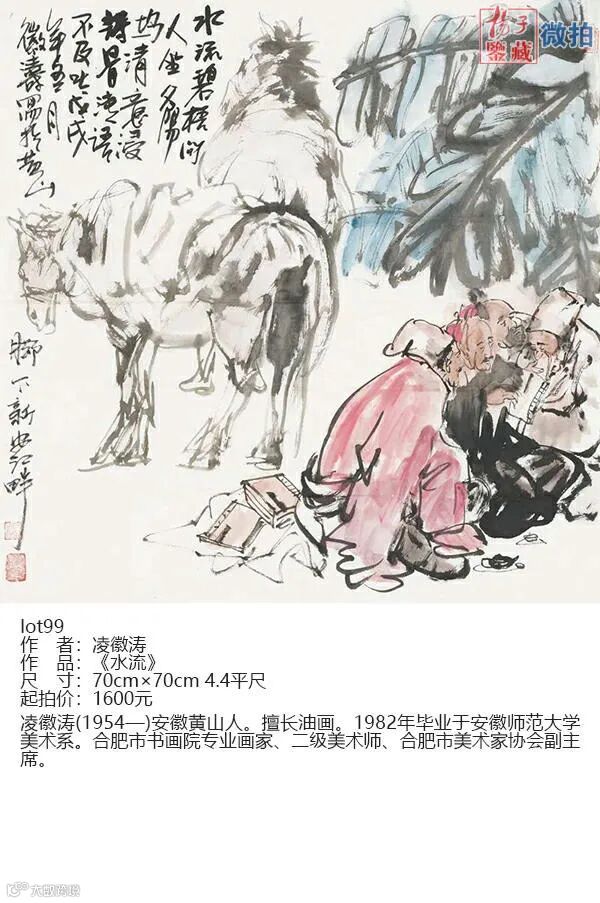 水流碧
人坐夕陽
清意
語
不及此戊戌
年五月
徽濤寫於黄山
脚下新安江畔
揚子
鑒藏
微拍
lot99
作 者：凌徽涛
作 品：《水流》
尺 寸：70cm×70cm 4.4平尺
起拍价：1600元
凌徽涛(1954—)安徽黄山人。擅长油画。1982年毕业于安徽师范大学
美术系。合肥市书画院专业画家、二级美术师、合肥市美术家协会副主
席。